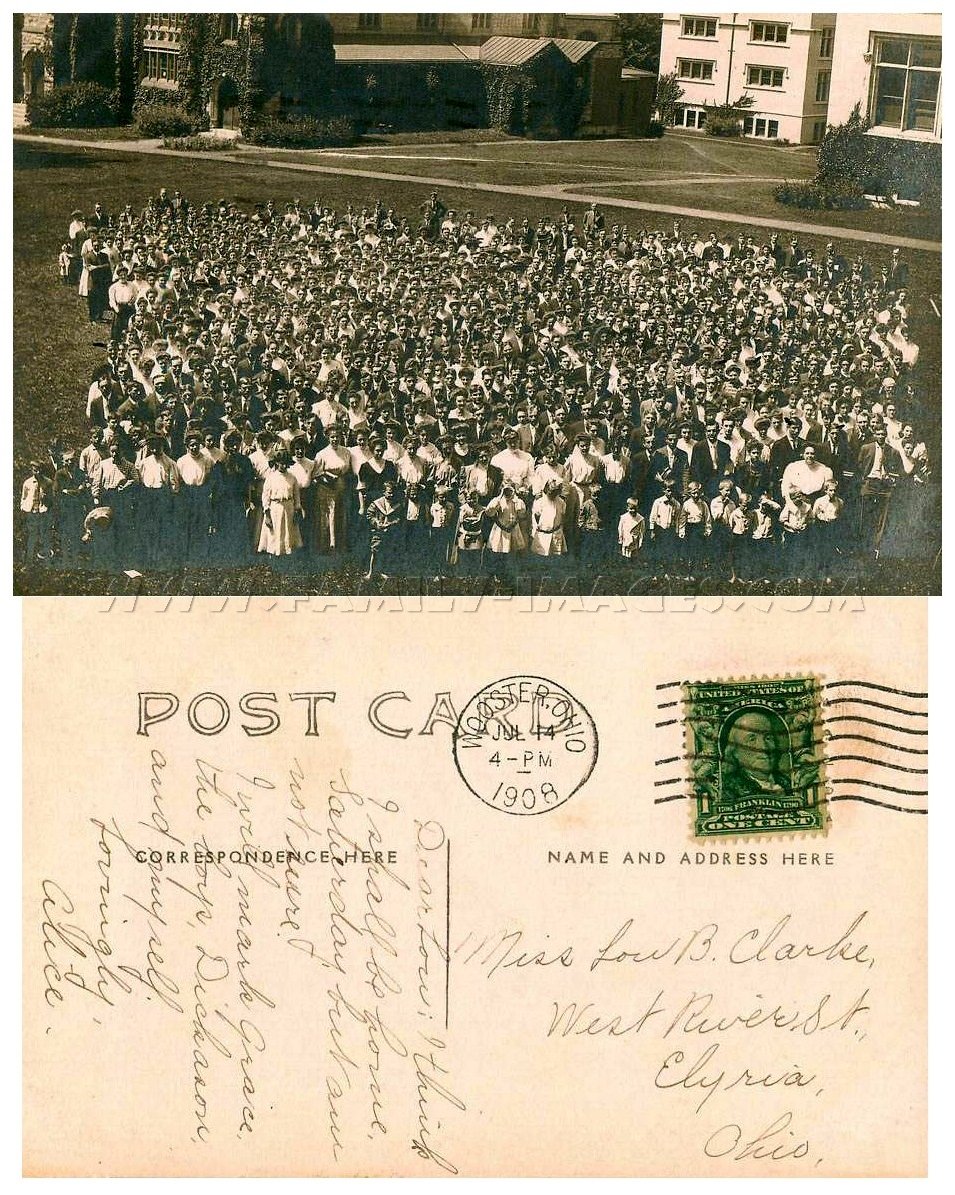 WWW.FAMILY-IMAGES.COM
POST CARD
WOOSTER, OHIO
JUL 14
4-PM
1908
UNITED STATES OF
AMERICA
1 1
1706 FRANKLIN 1790
POSTAGE
ONE CENT
CORRESPONDENCE HERE
NAME AND ADDRESS HERE
Dear Lou; I think
I shall be home,
Saturday, but am
not sure.
I will mark Grace,
the
Dickason,
and myself
Lovingly,
Alice.
Miss Lou B. Clarke,
West River St.,
Elyria,
Ohio,